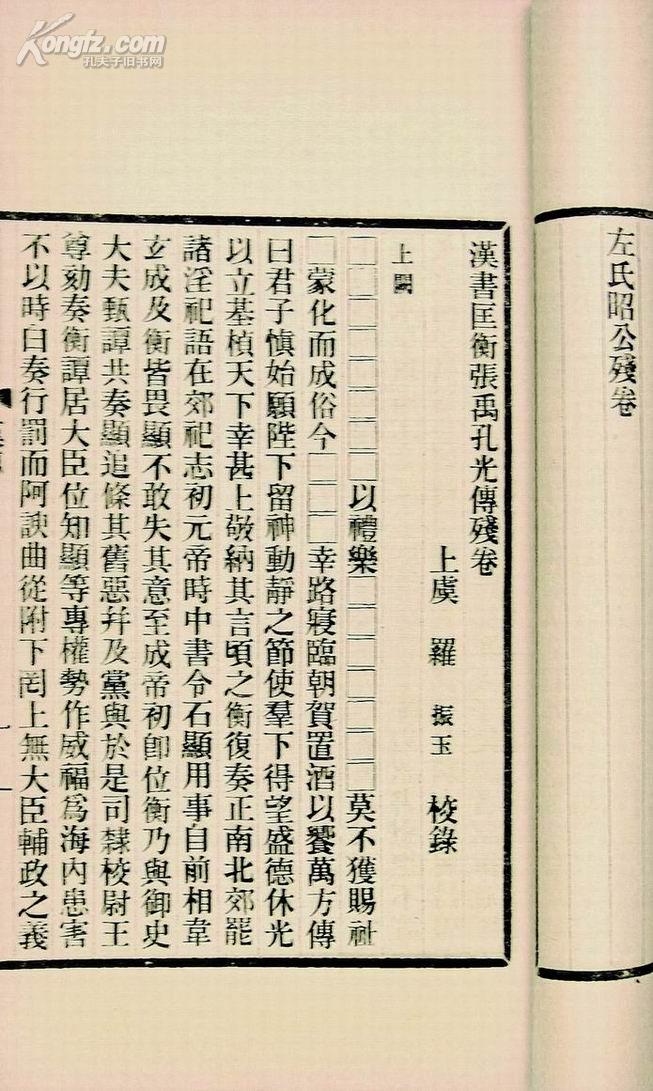 Kongfz.com
孔夫子旧书网
左氏昭公殘卷
漢書匡衡張禹孔光傳殘卷
上虞 羅振玉 校錄
上闕
□□□□□□□□以禮樂□□□□□□□莫不獲賜祉
□蒙化而成俗今□□□幸路寢臨朝賀置酒以饗萬方傳
曰君子慎始願陛下留神動靜之節使羣下得望盛德休光
以立基楨天下幸甚上敬納其言頃之衡復奏正南北郊罷
諸淫祀語在郊祀志初元帝時中書令石顯用事自前相韋
玄成及衡皆畏顯不敢失其意至成帝初卽位衡乃與御史
大夫甄譚共奏顯追條其舊惡幷及黨與於是司隸校尉王
尊劾奏衡譚居大臣位知顯等專權勢作威福爲海內患害
不以時白奏行罰而阿諛曲從附下罔上無大臣輔政之義
一